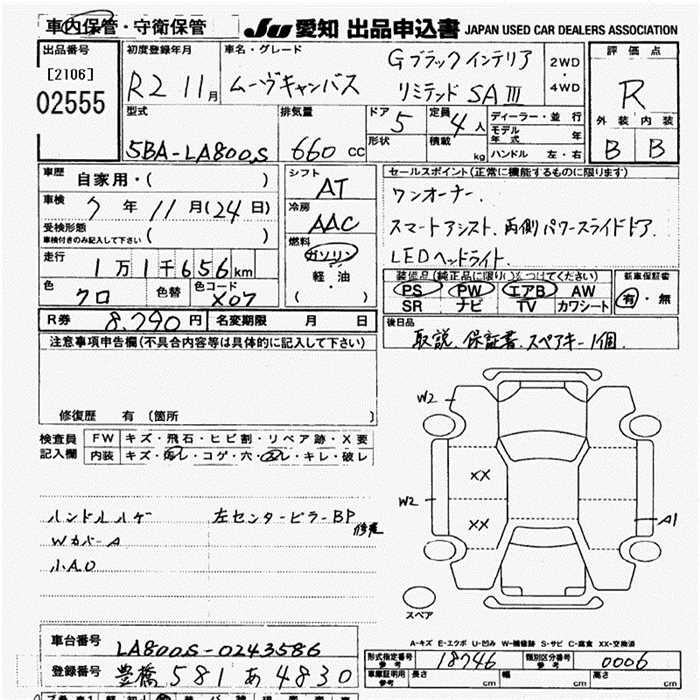 車内保管・守衛保管
JU 愛知 出品申込書 JAPAN USED CAR DEALERS ASSOCIATION
出品番号
[2106]
02555
初度登録年月
R2 11月
車名・グレード
ムーヴキャンバス
Gブラックインテリア
リミテッド SAⅢ
2WD
・
4WD
評価点
R
外装 内装
B B
型式
5BA-LA800S
排気量
660 cc
ドア
5
形状
定員
4人
積載
kg
ディーラー・並行
モデル年式 年
ハンドル 左・右
車歴
自家用・( )
車検
7年11月(24日)
受検形態
車検付きのみ記入して下さい ( )
走行
1万1千656km
色
クロ
色替
色コード
X07
シフト
AT
冷房
AAC
燃料
ガソリン
・
軽・油
( )
セールスポイント(正常に機能するものに限ります)
ワンオーナー.
スマートアシスト. 両側パワースライドドア.
LEDヘッドライト.
装備品(純正品に限り○をつけてください)
PS PW エアB AW
SR ナビ TV カワシート
新車保証書
有・無
R券 8,790円
名変期限 月 日
後日品
取説. 保証書. スペアキー1個.
注意事項申告欄(不具合内容等は具体的に記入して下さい)
修復歴 有 〔箇所 〕
検査員記入欄
FW キズ・飛石・ヒビ割・リペア跡・X要
内装 キズ・汚レ・コゲ・穴・スレ・キレ・破レ
ハンドルハゲ 左センターピラーBP
修理
WカバーA
小A.U
W2
XX
W2
XX
A1
スペア
A-キズ E-エクボ U-凹み W-補修跡 S-サビ C-腐食 XX-交換済
車台番号
LA800S-0243586
登録番号
豊橋 581 あ 4830
形式指定番号
参考
18746
類別区分番号
参考
0006
車庫証明用
参考
長さ cm
幅 cm
高さ cm